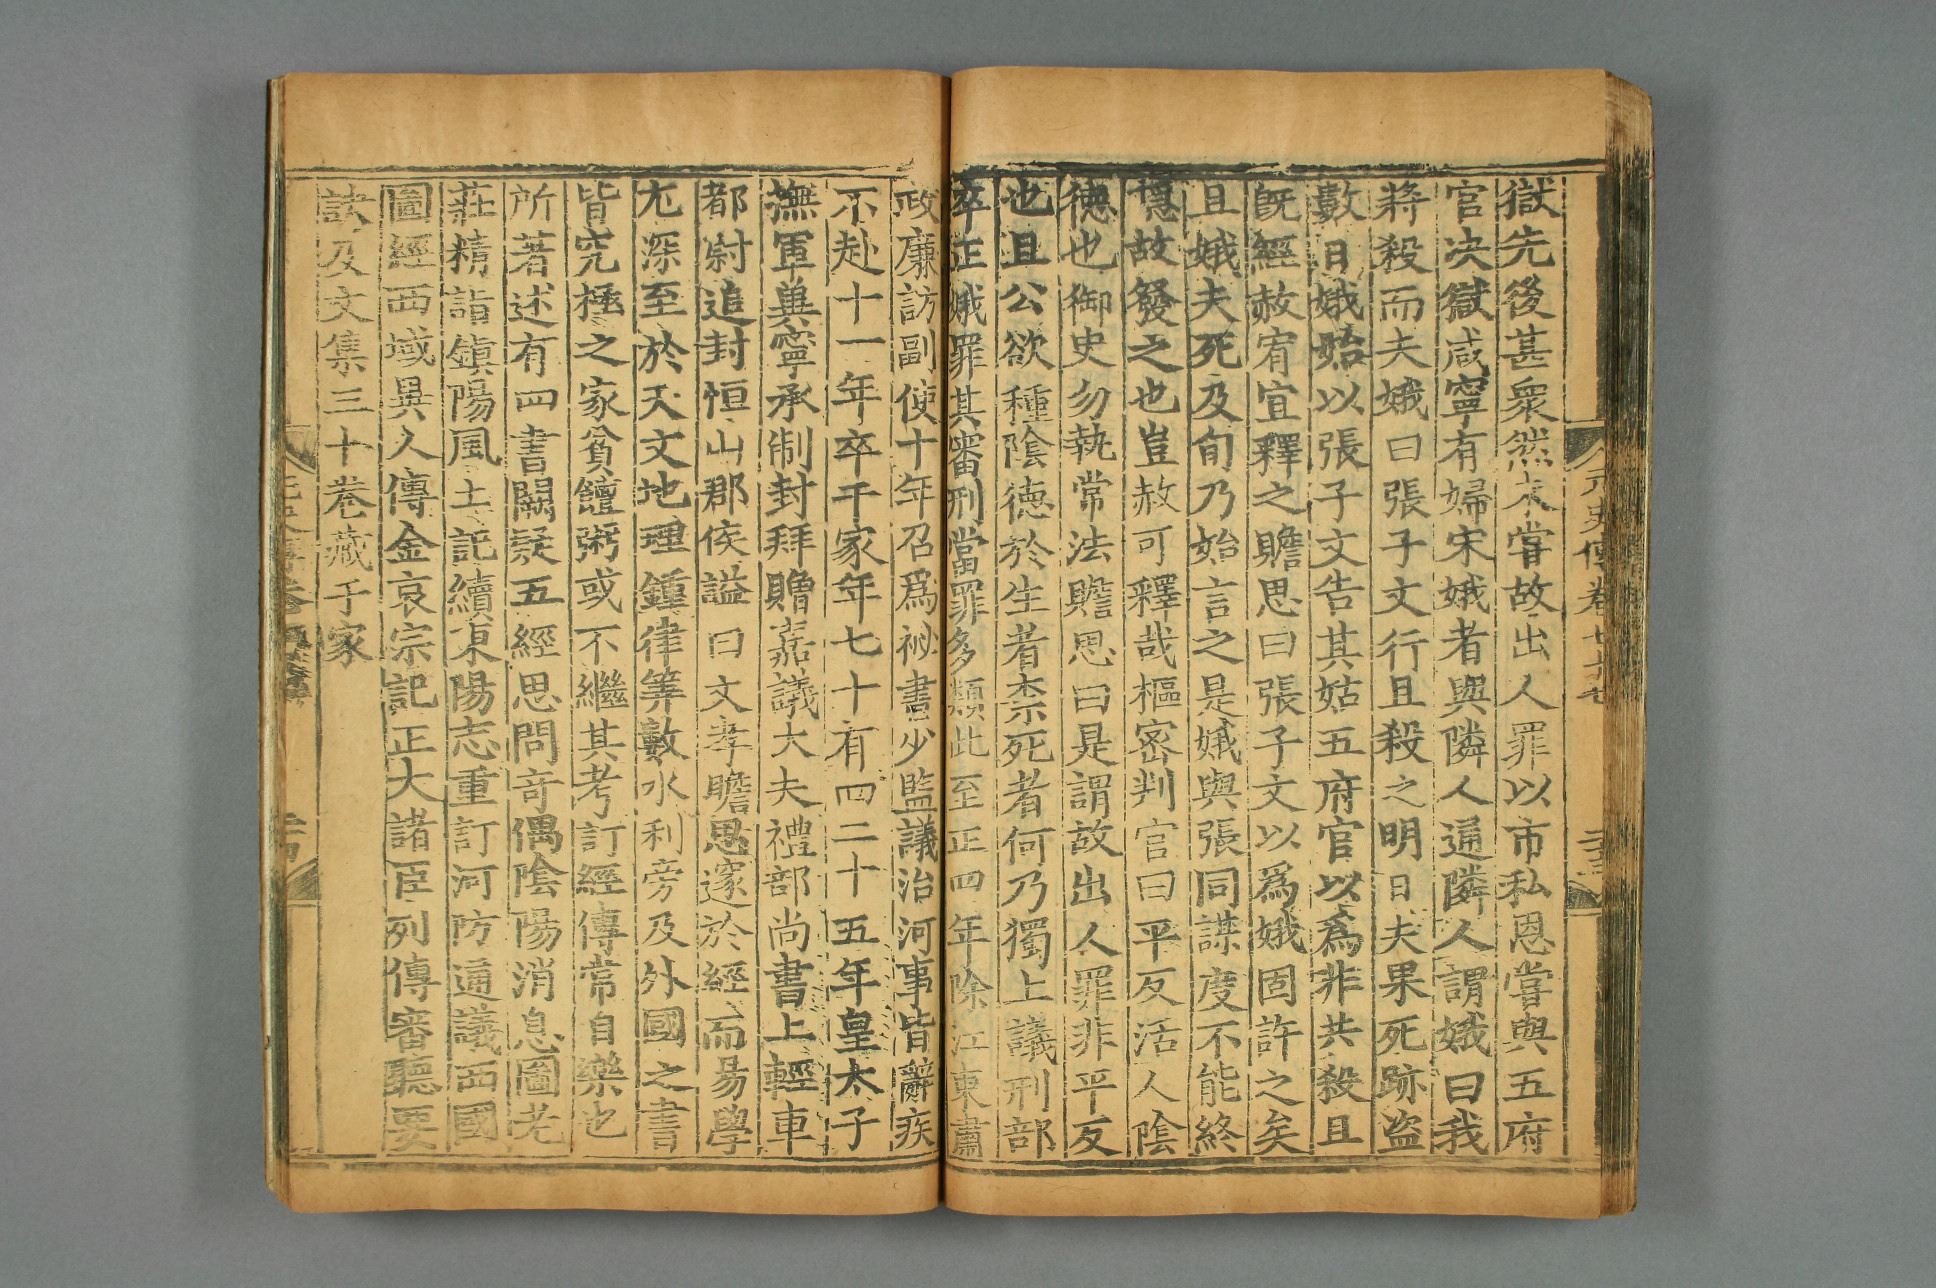 獄先後甚衆然未嘗故出人罪以市私恩嘗與五府
官决獄咸寧有婦宋娥者與隣人通隣人謂娥曰我
將殺而夫娥曰張子文行且殺之明日夫果死跡盗
數日娥始以張子文告其姑五府官以爲非共殺且
既經赦宥宜釋之贍思曰張子文以爲娥固許之矣
且娥夫死及旬乃始言之是娥與張同謀度不能終
隱故發之也豈赦可釋哉樞密判官曰平反活人陰
德也御史勿執常法贍思曰是謂故出人罪非平反
也且公欲種陰德於生者柰死者何乃獨上議刑部
卒正娥罪其審刑當罪多類此至正四年除江東肅
政廉訪副使十年召爲祕書少監議治河事皆辭疾
不赴十一年卒于家年七十有四二十五年皇太子
撫軍冀寧承制封拜贈嘉議大夫禮部尚書上輕車
都尉追封恒山郡侯謚曰文孝贍思邃於經而易學
尤深至於天文地理鍾律筭數水利旁及外國之書
皆究極之家貧饘粥或不繼其考訂經傳常自樂也
所著述有四書闕疑五經思問竒偶陰陽消息圖老
莊精詣鎮陽風土記續東陽志重訂河防通議西國
圖經西域異人傳金哀宗記正大諸臣列傳審聽要
訣及文集三十卷藏于家